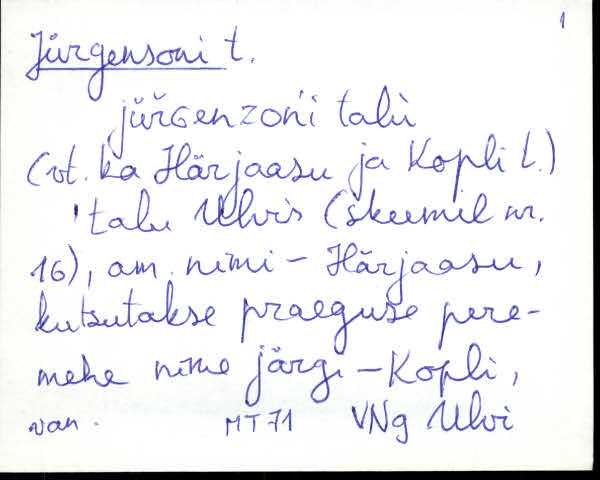 1
Jürgensoni t.
jürGenzoń́i talù
(vt. ka Härjaasu ja Kopli t.)
talu Ulvis (skeemil nr.
16), am. nimi - Härjaasu,
kutsutakse praeguse pere-
mehe nime järgi - Kopli,
van. MT 71 VNg Ulvi